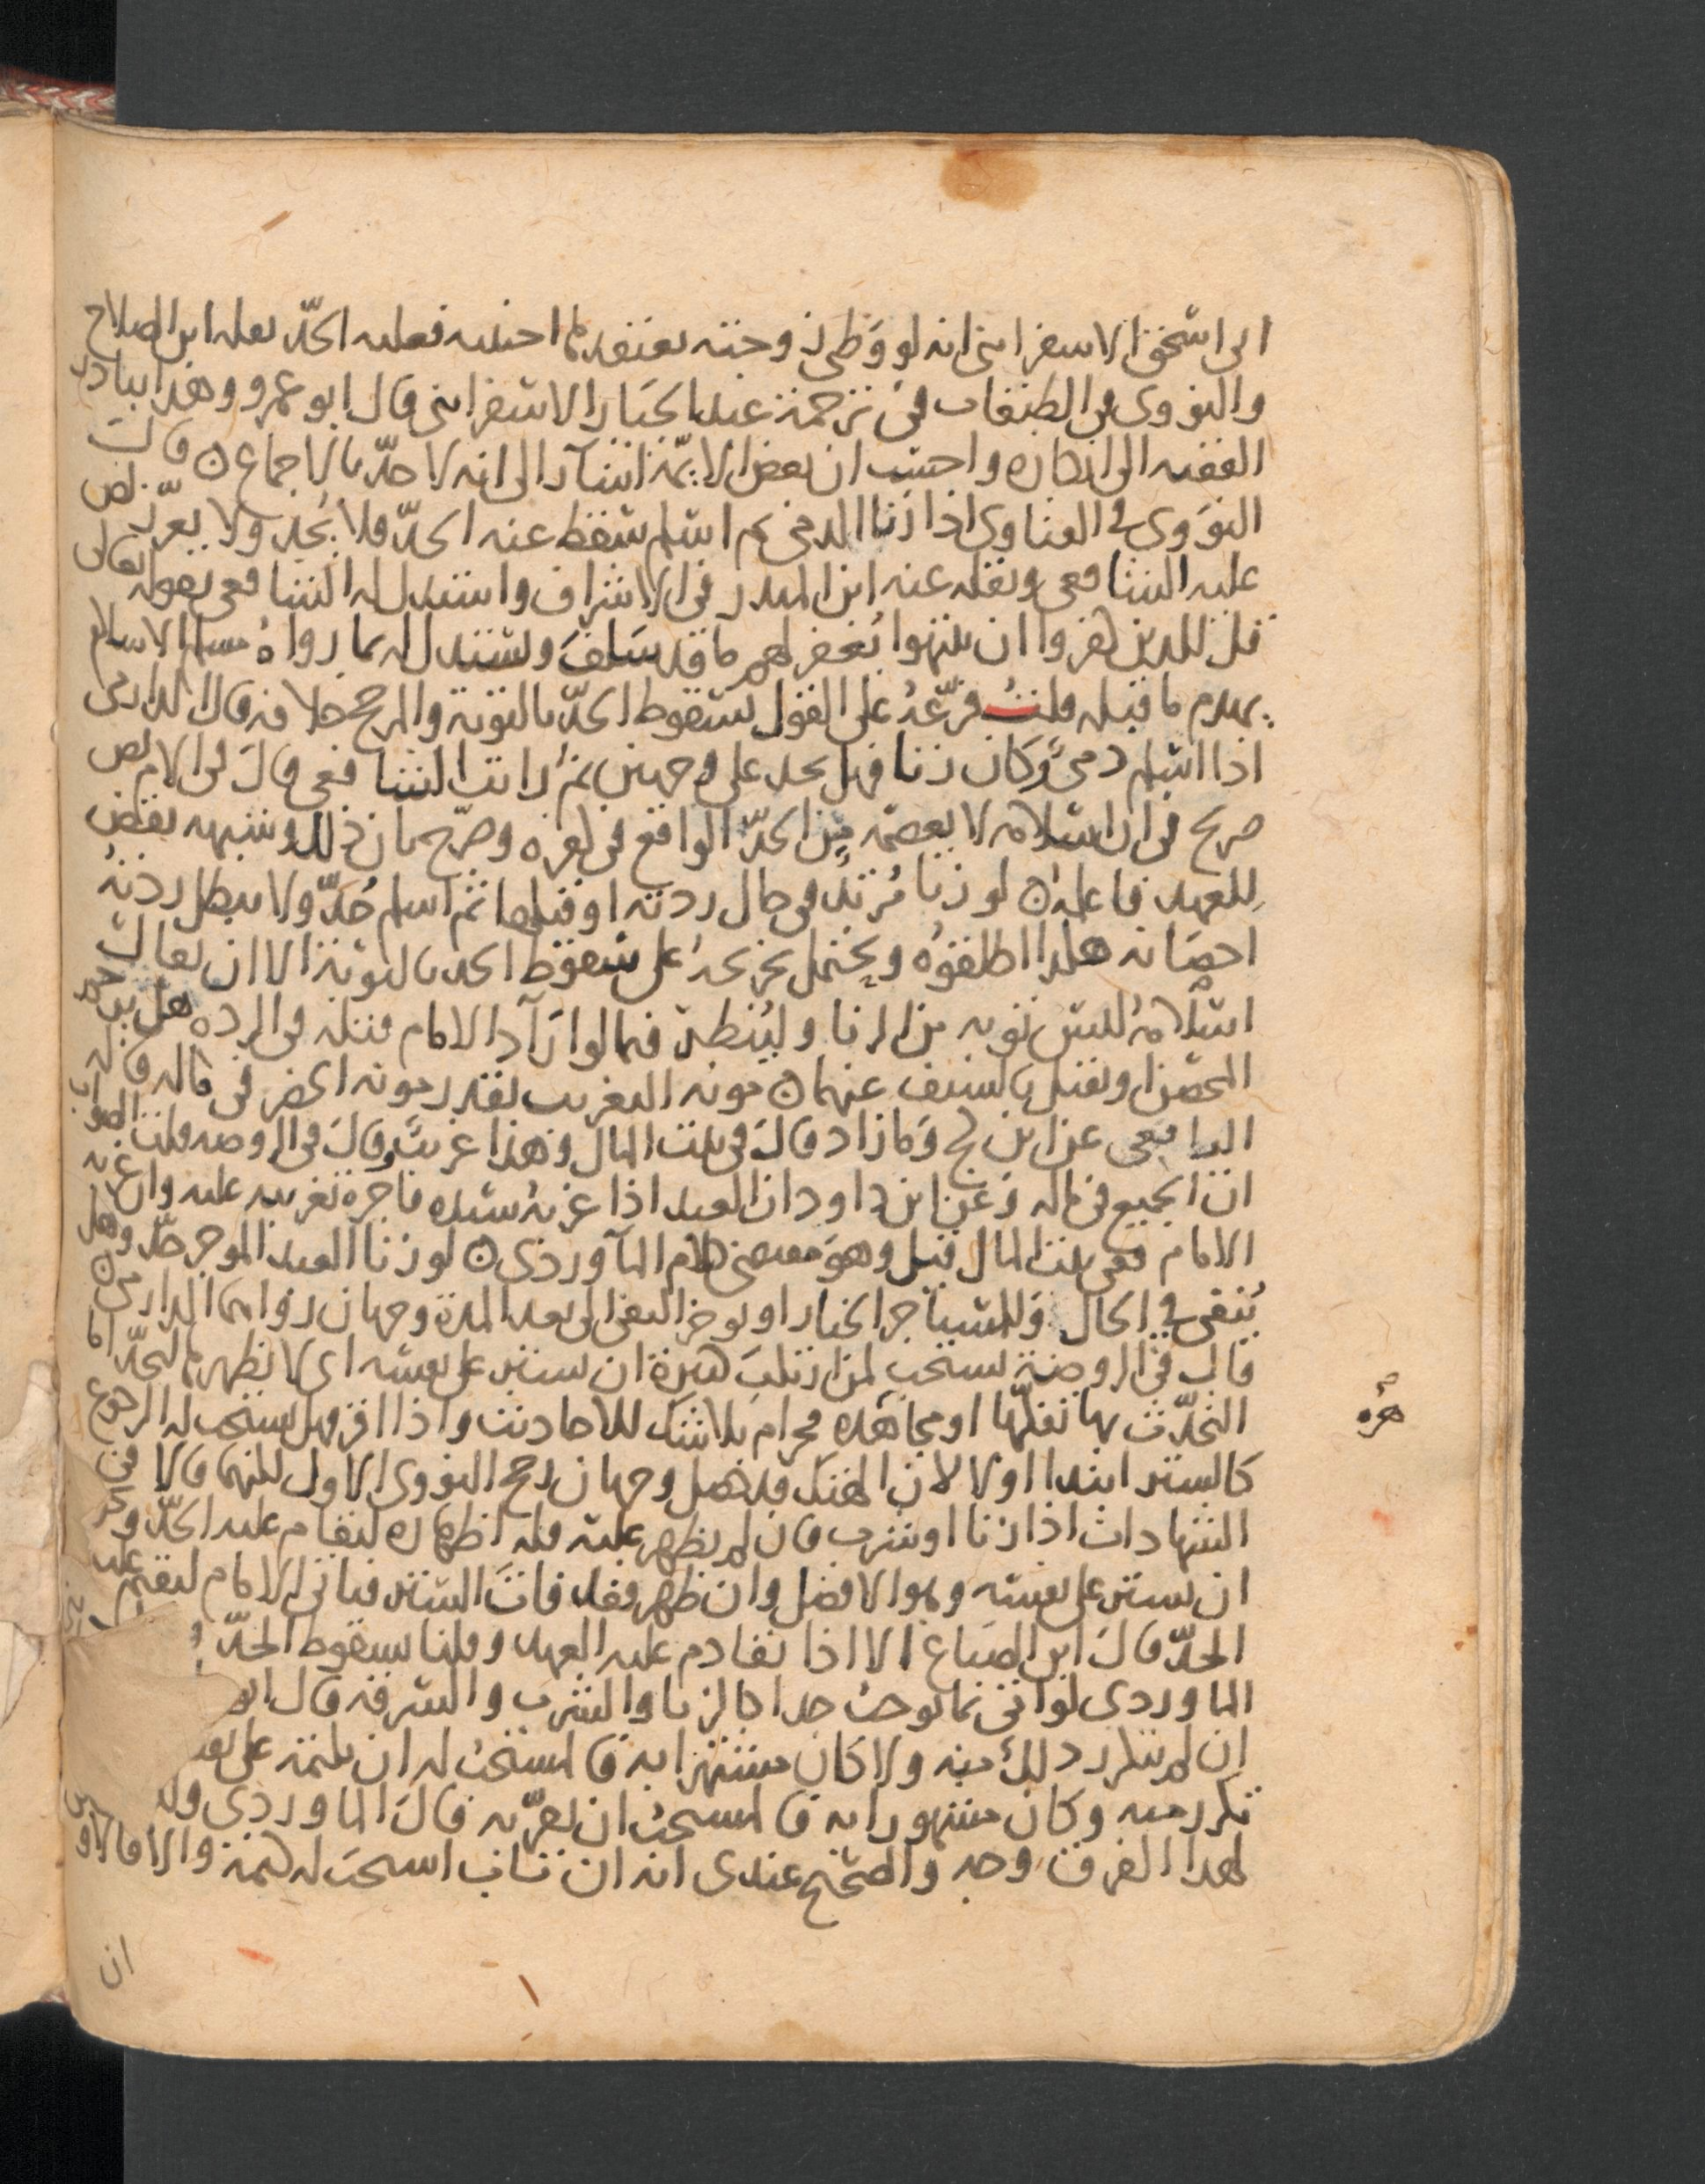 ابى اسحق الاسفراينى انه لو وطى زوجته يعتقدها اجنبيه فعليه الحدّ نقله ابن الصلاح
والنووى فى الطبقات فى ترجمة عبد الجبار الاسفراينى قال ابو عمرو وهذا يبادر
الفقيه الى انكاره واحسب ان بعض الايمّة اشار الى انه لا حدّ بالاجماع ن قال
النوَوى فى الفتاوى اذا زنا الذمى ثم اسلم سقط عنه الحدّ فلا يُحد ولا يعزّر نص
عليه الشافعى ونقله عنه ابن المنذر فى الاشراف واستدل له الشافعى بقوله تعالى
قل للذين كفروا ان ينتهوا يُغفر لهم ما قد سَلفَ ويستدل له بما رواهُ مسلم الاسلام
يهدم ما قبله قلتُ فرّعهُ على القول بسقوط الحدّ بالتوبة والمرجح خلافه قال الدارمى
اذا اسلم ذمىٌ وكان زنا فهل يحد على وجهين ثم رايت الشافعى قال فى الام نص
صريح فى ان اسلامه لا يعصمه مِن الحدّ الواقع فى كفره وصرّح بان ذلك وشبهه نقض
للعهد فاعلمه ن لو زنا مُرتدٌ فى حال ردته او قبلها ثم اسلم حُدّ ولا يبطل ردتهُ
احصانه هكذا اطلقوهُ ويحتمل تخريجهُ على سقوط الحد بالتوبة الا ان يقال
اسلامهُ ليس توبه من الزنا وليُنظر فيما لو ارَاد الامام قتله فى الردة هل يرجم
المحصن او يقتل بالسيف عنهما ن مونه التغريب بقدر مونه الحضر فى ماله قاله
الرافعى عن ابن كج وَما زاد قالَ فى بيت المال وَهذا غريبٌ وقالَ فى الروضه قلت الصواب
انّ الجميع فى ماله وَعَن ابن داود ان العبد اذا غربهُ سيده فاجرة تغريبه عليه وان غربه
الامام ففى بيت المال قيل وهوَ مقتضى كلام المآوردى ن لو زنا العبد الموجر حدّ وهل
يُنفى فى الحال وَللمستاجر الخيار او يوخر النفى الى بعد المدة وجهان رواهما الدارمى ن
قال فى الروضة يستحب لمن ارتكبَ كبيرة ان يستتر على نفسه اى لا يظهرها ليحدّ اما
التحدّث بها تفكّها او مجاهره فحرام بلا شك للاحاديث واذا اقر فهل يستحب له الرجوع
كالستر ابتداء اولا لان الهتك قد حصل وجهان رجح النووى الاول كلتهما قالا فى
الشهادات اذا زنا او شرب فان لم يظهر عليه فله اظهاره ليقام عليه الحدّ و
ان يستتر على نفسه وهوا لافضل وان ظهر فقد فات الستر فياتى الامام ليقيم عليه
الحدّ قالَ ابن الصباغ الا اذا تقادم عليه العهد وقلنا بسقوط الحدّ
الماوردى لو اتى بما يوجبُ حدا كالزنا والشرب والسرقه قال
ان لم يتكرر ذلك منه ولا كان مشتهرا به فالمستحب له ان يكتمه على نفسه
تكرر منه وكان مشهورا به فالمستحبُ ان يقرّ به قالَ الماوردى
لهذا الفرق وجه والصّحيح عندى انه ان تاب استحب له كتمه والا فالاولى
هره
ان